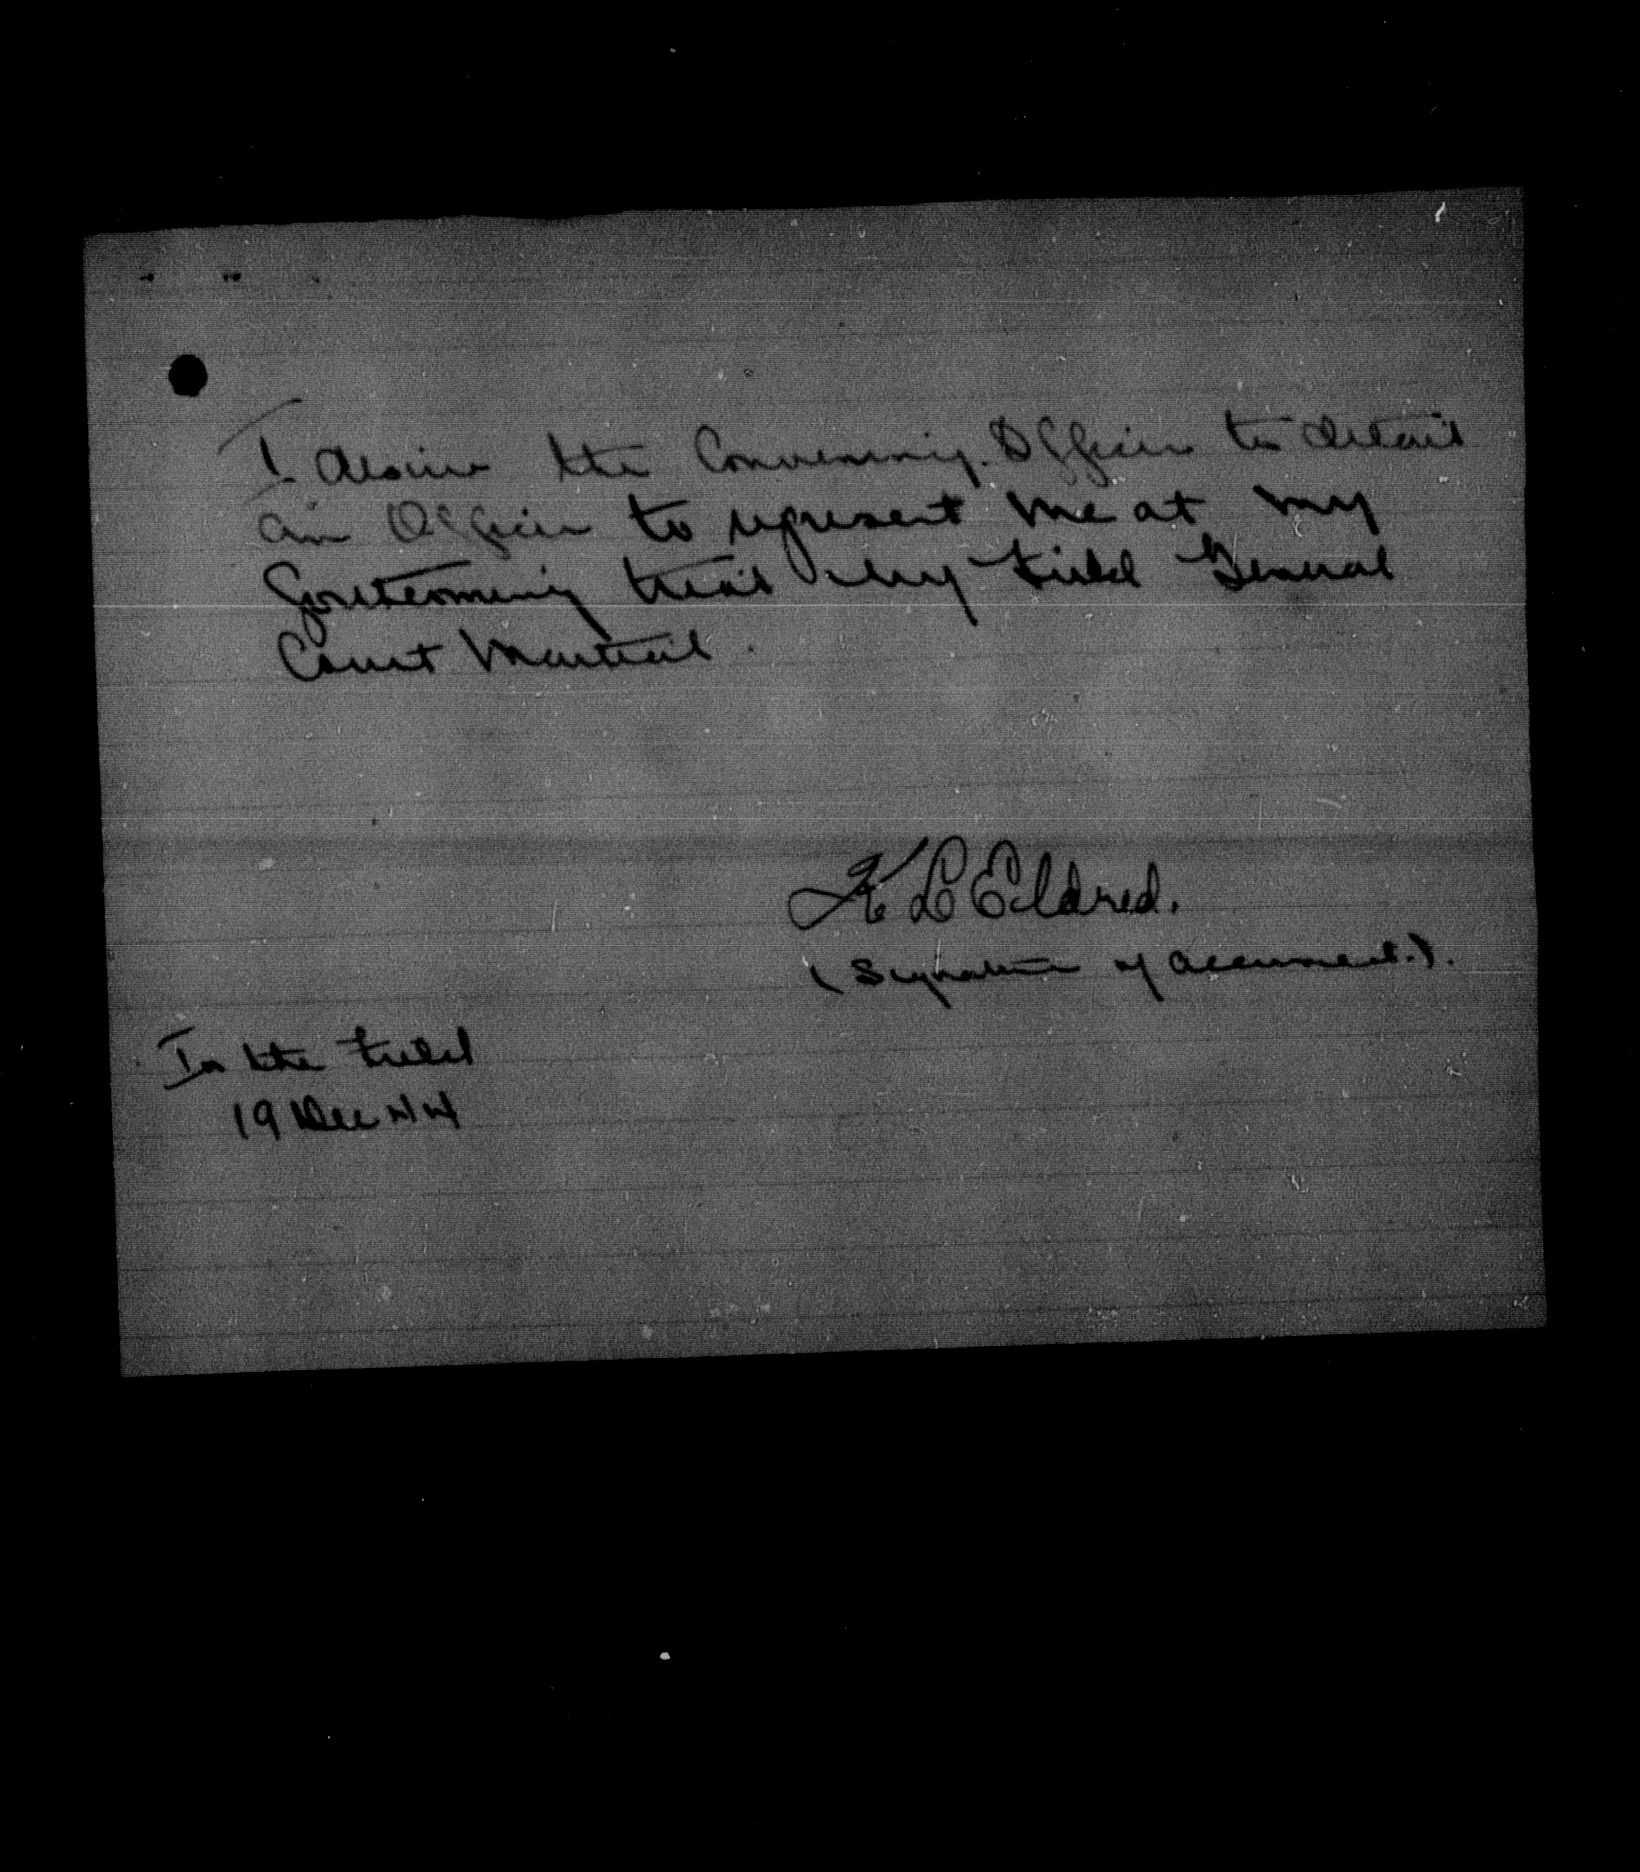 I desire the Convening Officer to detail
an Officer to represent me at my
forthcoming trial by Field General
Court Martial.
L Eldred.
(Signature of accused.).
In the Field
19 Dec 44